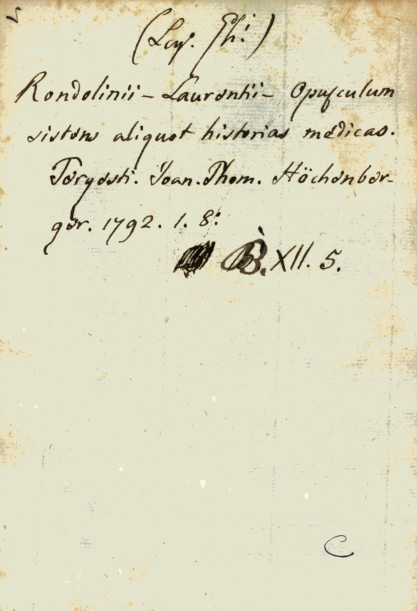 (Lay. Ph:)
Rondolinii - Laurentii - Opusculum
sistens aliquot historias medicas.
Tergesti. Joan. Thom. Höchenber-
ger. 1792. 1. 8:
B. XII. 5.
C